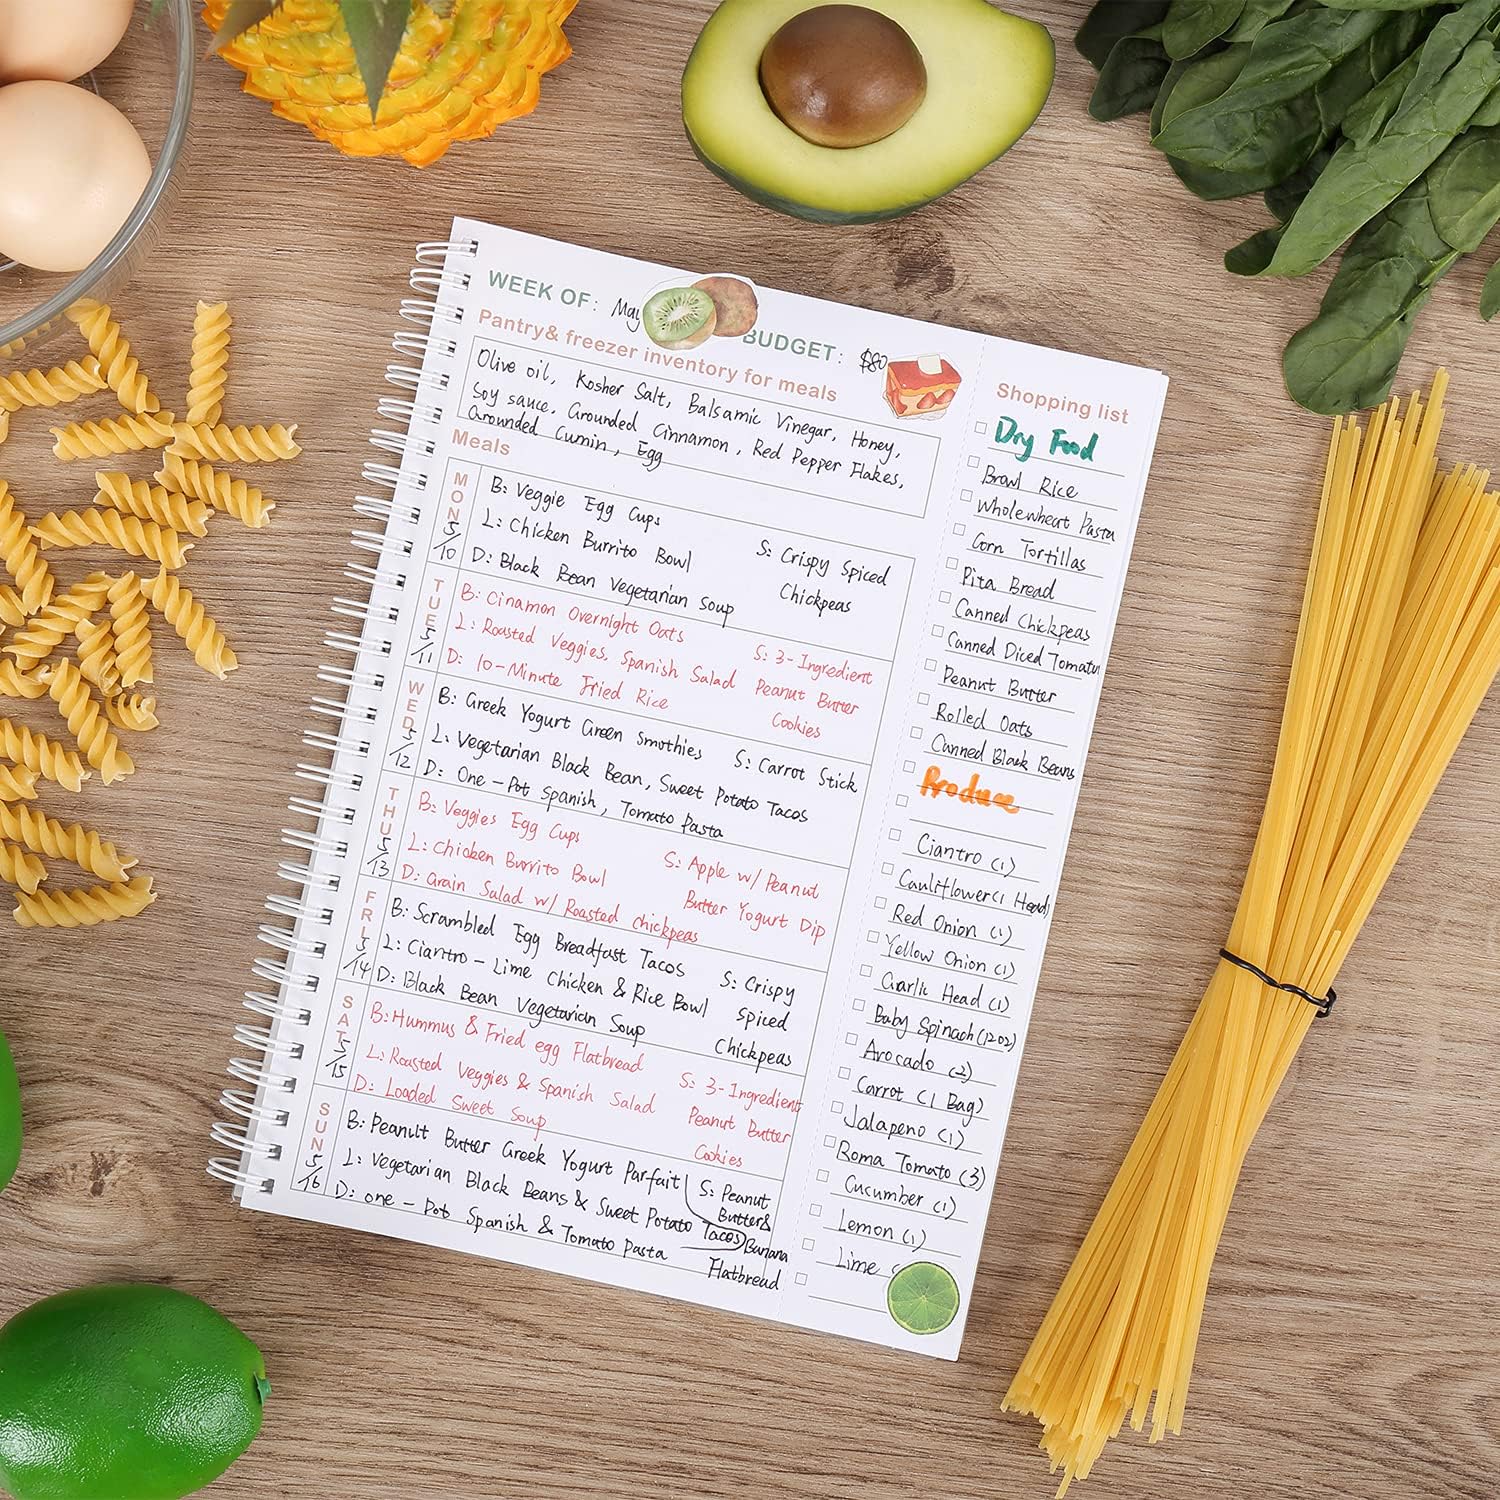 WEEK OF: May
BUDGET: $80
Pantry& freezer inventory for meals
Olive oil, Kosher Salt, Balsamic Vinegar, Honey,
Soy sauce, Grounded Cinnamon, Red Pepper Flakes,
Grounded Cumin, Egg
Meals
MON 5/10
B: Veggie Egg Cups
L: Chicken Burrito Bowl
D: Black Bean Vegetarian Soup
S: Crispy Spiced
Chickpeas
TUE 5/11
B: Cinamon Overnight Oats
L: Roasted Veggies, Spanish Salad
D: 10-Minute Fried Rice
S: 3-Ingredient
Peanut Butter
Cookies
WED 5/12
B: Greek Yogurt Green Smothies
L: Vegetarian Black Bean, Sweet Potato Tacos
D: One-Pot Spanish, Tomato Pasta
S: Carrot Stick
THU 5/13
B: Veggies Egg Cups
L: Chicken Burrito Bowl
D: Grain Salad w/ Roasted chickpeas
S: Apple w/ Peanut
Butter Yogurt Dip
FRI 5/14
B: Scrambled Egg Breadfast Tacos
L: Ciantro-Lime Chicken & Rice Bowl
D: Black Bean Vegetarian Soup
S: Crispy
Spiced
Chickpeas
SAT 5/15
B: Hummus & Fried egg Flatbread
L: Roasted Veggies & Spanish Salad
D: Loaded Sweet Soup
S: 3-Ingredient
Peanut Butter
Cookies
SUN 5/16
B: Peanult Butter Greek Yogurt Parfait
L: Vegetarian Black Beans & Sweet Potato Tacos
D: One-Pot Spanish & Tomato Pasta
S: Peanut
Butter&
Banana
Flatbread
Shopping list
Dry Food
Brawl Rice
Wholewheart Pasta
Corn Tortillas
Pita Bread
Canned Chickpeas
Canned Diced Tomatus
Peanut Butter
Rolled Oats
Canned Black Beans
Produce
Ciantro (1)
Cauliflower (1 Head)
Red Onion (1)
Yellow Onion (1)
Garlic Head (1)
Baby Spinach (12oz)
Avocado (2)
Carrot (1 Bag)
Jalapeno (1)
Roma Tomato (3)
Cucumber (1)
Lemon (1)
Lime